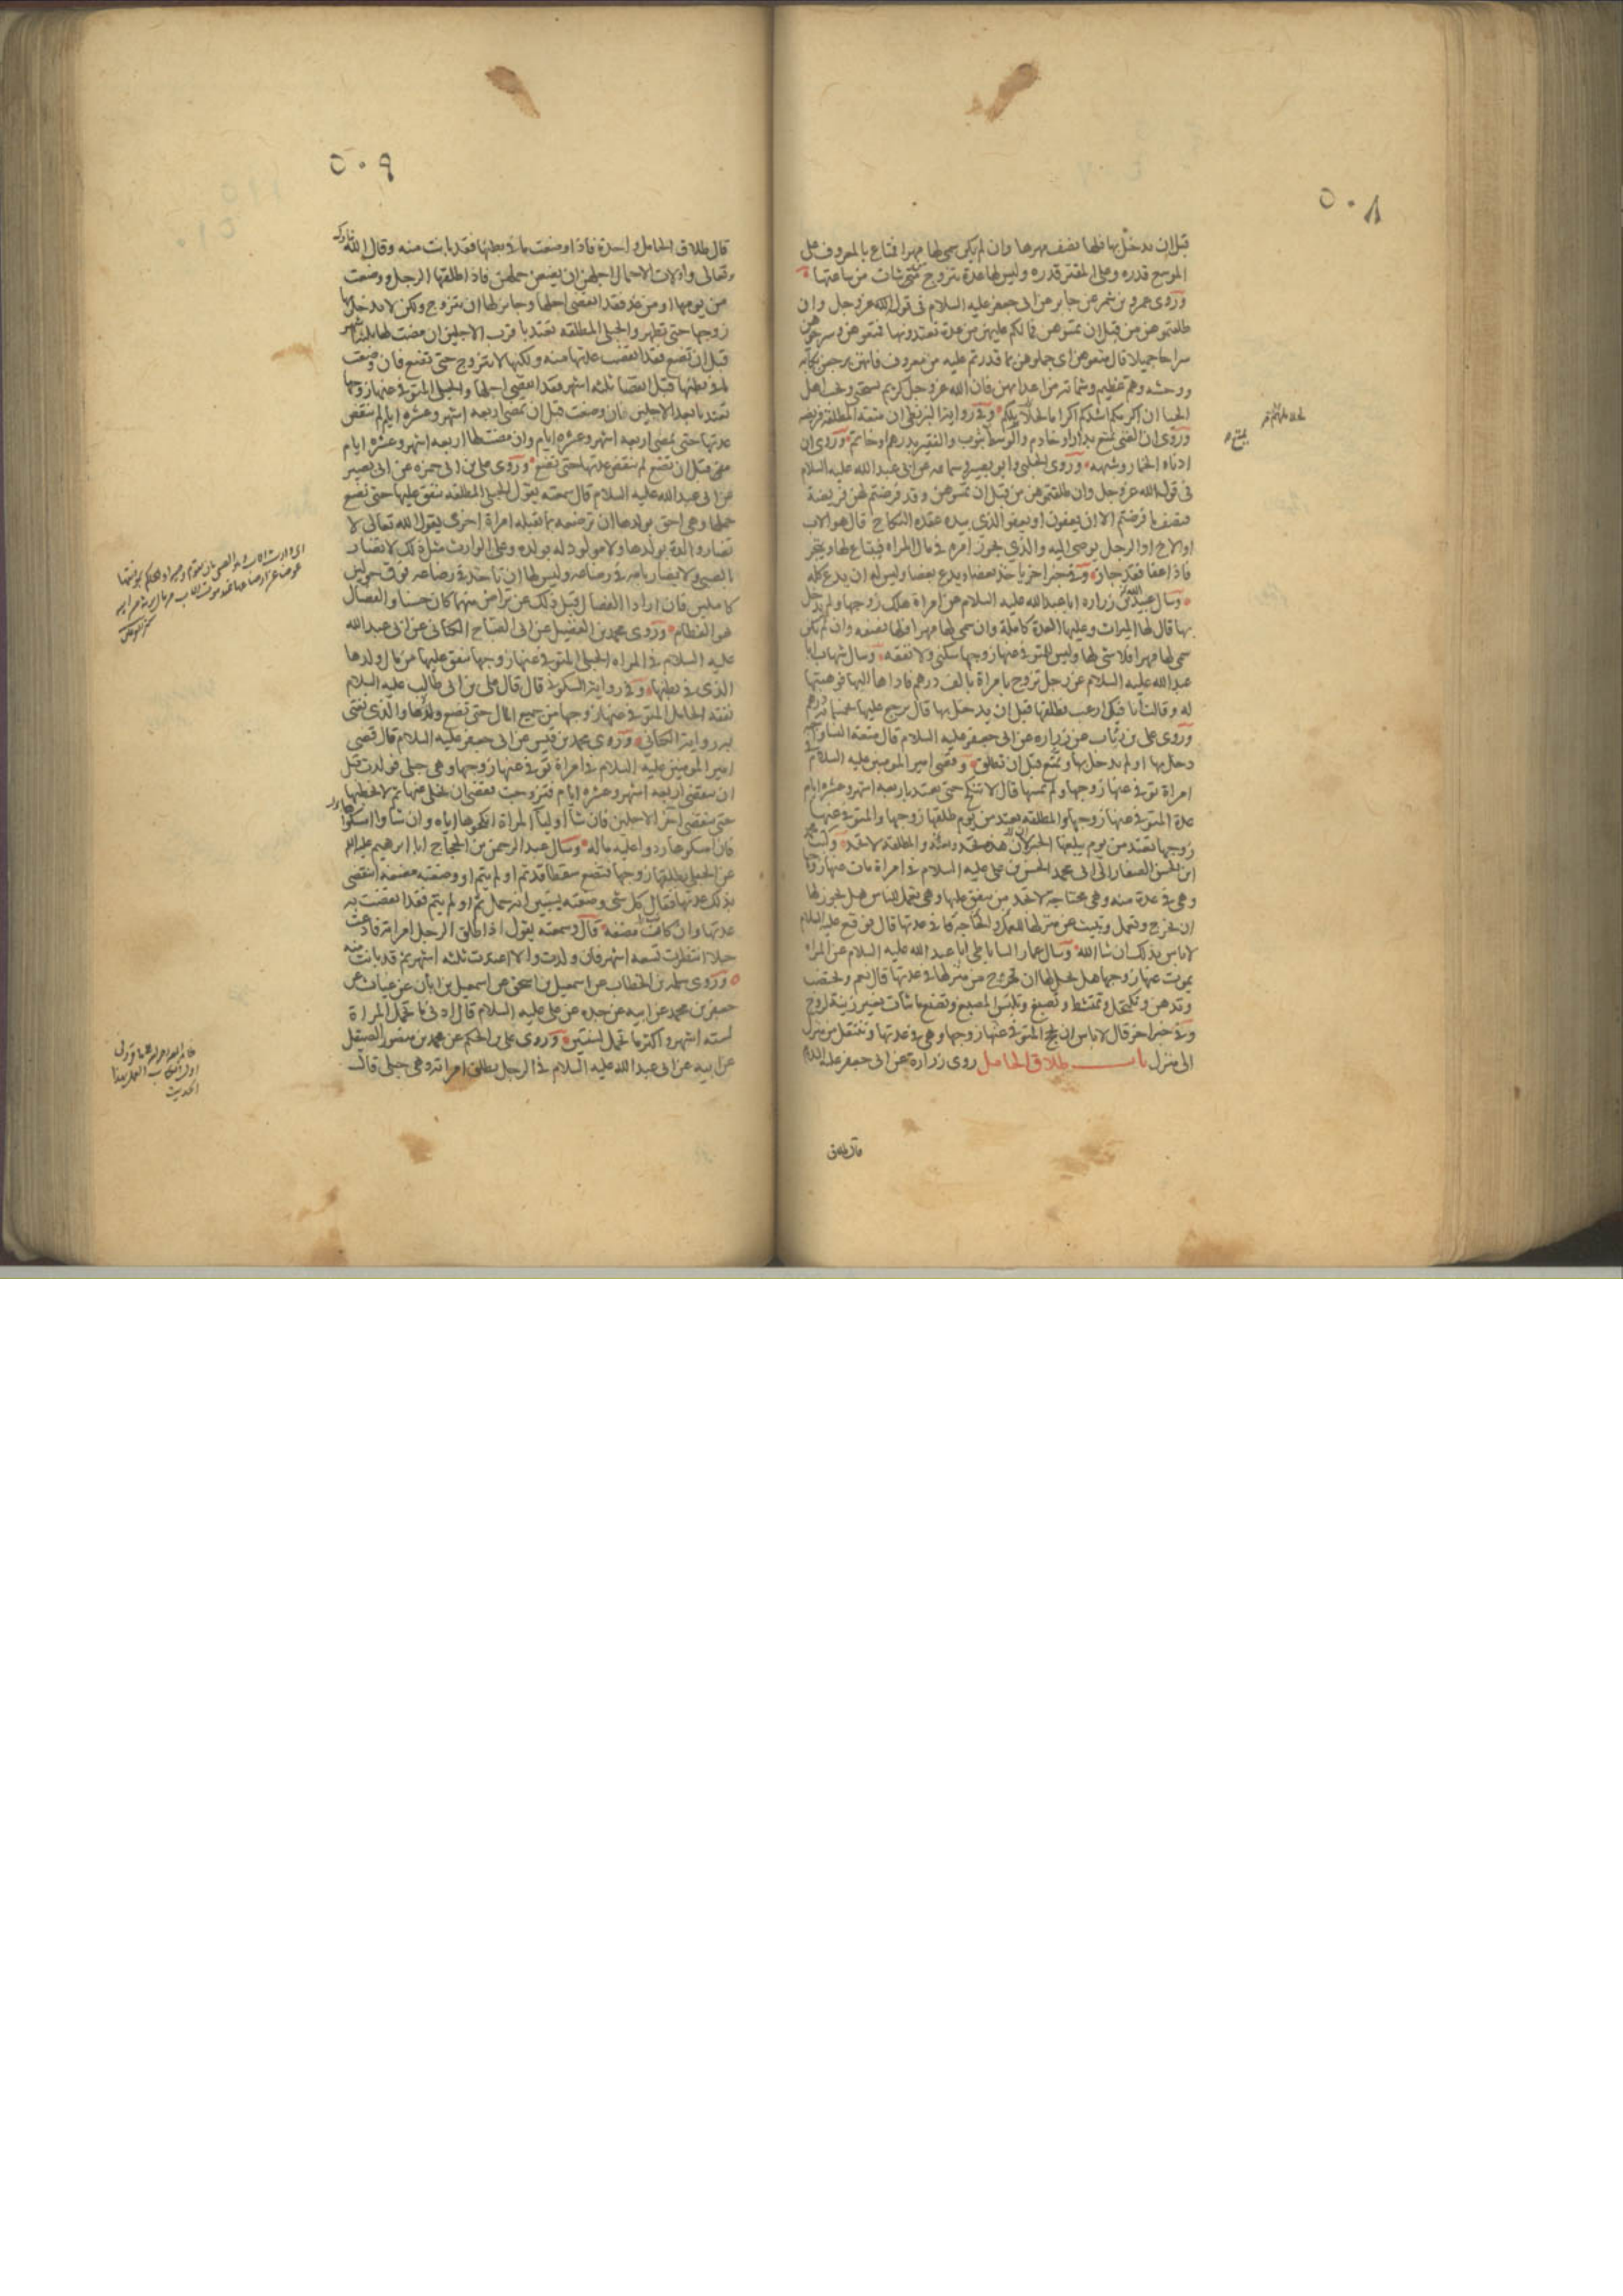 ٥٠٨
قبل ان يدخل بها فلها نصف مهرها وان لم يكن سمى لها مهرا فمتاع بالمعروف على
الموسع قدره وعلى المقتر قدره وليس لها عدة تتزوج متى شاءت من ساعتها
وروى عمرو بن شمر عن جابر عن ابى جعفر عليه السلام فى قول الله عز وجل وان
طلقتموهن من قبل ان تمسوهن فما لكم عليهن من عدة تعتدونها فمتعوهن وسرحوهن
سراحا جميلا قال متعوهن اى جملوهن بما قدرتم عليه من معروف فانهن يرجعن بكابة
ووحشة وهم عظيم وشماتة من اعدائهن فان الله عز وجل كريم يستحيى ويحب اهل
الحيا ان اكرمكم اشدكم اكراما لحلائلكم وفى رواية البزنطى ان متعة المطلقة فريضة
وروى ان الغنى يمتع بدار او خادم والوسط بثوب والفقير بدرهم او خاتم وروى ان
ادناه الخمار وشبهه وروى الحلبى وابو بصير وسماعة عن ابى عبد الله عليه السلام
فى قول الله عز وجل وان طلقتموهن من قبل ان تمسوهن وقد فرضتم لهن فريضة
فنصف ما فرضتم الا ان يعفون او يعفو الذى بيده عقدة النكاح قال هو الاب
او الاخ او الرجل يوصى اليه والذى يجوز امره فى مال المراة فيبتاع لها ويتجر
فاذا عفا فقد جاز وفى خبر اخر ياخذ بعضا ويدع بعضا وليس له ان يدع كله
وسال عبيد بن زرارة ابا عبد الله عليه السلام عن امراة هلك زوجها ولم يدخل
بها قال لها الميراث وعليها العدة كاملة وان سمى لها مهرا فلها نصفه وان لم يكن
سمى لها مهرا فلا شى لها وليس للمتوفى عنها زوجها سكنى ولا نفقة وسال شهاب ابا
عبد الله عليه السلام عن رجل تزوج بامراة بالف درهم فاداها اليها فوهبتها
له وقالت انا فيك ارغب فطلقها قبل ان يدخل بها قال يرجع عليها بخمسمائة درهم
وروى على بن رئاب عن زرارة عن ابى جعفر عليه السلام قال متعة النساء واجبة
دخل بها او لم يدخل بها وتمتع قبل ان تطلق وقضى امير المومنين عليه السلام فى
امراة توفى عنها زوجها ولم يمسها قال لا تنكح حتى تعتد باربعة اشهر وعشرة ايام
عدة المتوفى عنها زوجها والمطلقة تعتد من يوم طلقها زوجها والمتوفى عنها
زوجها تعتد من يوم يبلغها الخبر لان هذه تحد والمطلقة لا تحد وكتب محمد
ابن الحسن الصفار الى ابى محمد الحسن بن على عليه السلام فى امراة مات عنها زوجها
وهى فى عدة منه وهى محتاجة لا تجد من ينفق عليها وهى تعمل للناس هل يجوز لها
ان تخرج وتعمل وتبيت عن منزلها للعمل والحاجة فى عدتها قال فوقع عليه السلام
لا باس بذلك ان شا الله وسال عمار الساباطى ابا عبد الله عليه السلام عن المراة
يموت عنها زوجها هل يحل لها ان تخرج من منزلها فى عدتها قال نعم وتختضب
وتدهن وتكتحل وتمتشط وتصبغ وتلبس المصبغ وتصنع ما شاءت بغير زينة لزوج
وفى خبر اخر قال لا باس ان تحج المتوفى عنها زوجها وهى فى عدتها وتنتقل من منزل
الى منزل باب طلاق الحامل روى زرارة عن ابى جعفر عليه السلام
قال طلاق
٥٠٩
قال طلاق الحامل واحدة فاذا وضعت ما فى بطنها فقد بانت منه وقال الله تبارك
وتعالى واولات الاحمال اجلهن ان يضعن حملهن فاذا طلقها الرجل ووضعت
من يومها او من غد فقد انقضى اجلها وجايز لها ان تتزوج ولكن لا يدخل بها
زوجها حتى تطهر والحبلى المطلقة تعتد باقرب الاجلين ان مضت لها ثلثة اشهر
قبل ان تضع فقد انقضت عدتها منه ولكنها لا تتزوج حتى تضع فان وضعت
ما فى بطنها قبل انقضا ثلثة اشهر فقد انقضى اجلها والحبلى المتوفى عنها زوجها
تعتد بابعد الاجلين فان وضعت قبل ان تمضى اربعة اشهر وعشرة ايام لم تنقض
عدتها حتى تمضى اربعة اشهر وعشرة ايام وان مضت لها اربعة اشهر وعشرة ايام
قبل ان تضع لم تنقض عدتها حتى تضع وروى على بن ابى حمزة عن ابى بصير
عن ابى عبد الله عليه السلام قال سمعته يقول الحبلى المطلقة ينفق عليها حتى تضع
حملها وهى احق بولدها ان ترضعه بما تقبله امراة اخرى يقول الله تعالى لا
تضار والدة بولدها ولا مولود له بولده وعلى الوارث مثل ذلك لا يضار
بالصبى ولا يضار بامه فى رضاعه وليس لها ان تاخذ فى رضاعه فوق حولين
كاملين فان ارادا الفصال قبل ذلك عن تراض منهما كان حسنا والفصال
هو الفطام وروى محمد بن الفضيل عن ابى الصباح الكنانى عن ابى عبد الله
عليه السلام فى المراة الحبلى المتوفى عنها زوجها ينفق عليها من مال ولدها
الذى فى بطنها وفى رواية السكونى قال قال على بن ابى طالب عليه السلام
نفقة الحامل المتوفى عنها زوجها من جميع المال حتى تضع والذى نفتى
به رواية الكنانى وروى محمد بن قيس عن ابى جعفر عليه السلام قال قضى
امير المومنين عليه السلام فى امراة توفى عنها زوجها وهى حبلى فولدت قبل
ان تنقضى اربعة اشهر وعشرة ايام فتزوجت فقضى ان يخلى عنها ثم لا يخطبها
حتى ينقضى آخر الاجلين فان شا اوليا المراة انكحوها اياه وان شاوا امسكوها
فان امسكوها ردوا عليه ماله وسال عبد الرحمن بن الحجاج ابا ابرهيم عليه السلام
عن الحبلى يطلقها زوجها فتضع سقطا قد تم او لم يتم او وضعته مضغة اتنقضى
بذلك عدتها فقال كل شى وضعته يستبين انه حمل تم او لم يتم فقد انقضت به
عدتها وان كانت مضغة قال وسمعته يقول اذا طلق الرجل امراته فادعت
حبلا انتظرت تسعة اشهر فان ولدت والا اعتدت ثلثة اشهر ثم قد بانت منه
وروى سلمة بن الخطاب عن اسمعيل بن اسحق عن اسمعيل بن ابان عن غياث عن
جعفر بن محمد عن ابيه عن جده عن على عليه السلام قال ادنى ما تحمل المراة
لستة اشهر واكثر ما تحمل لسنتين وروى على بن الحكم عن محمد بن منصور الصيقل
عن ابيه عن ابى عبد الله عليه السلام فى الرجل يطلق امراته وهى حبلى قال